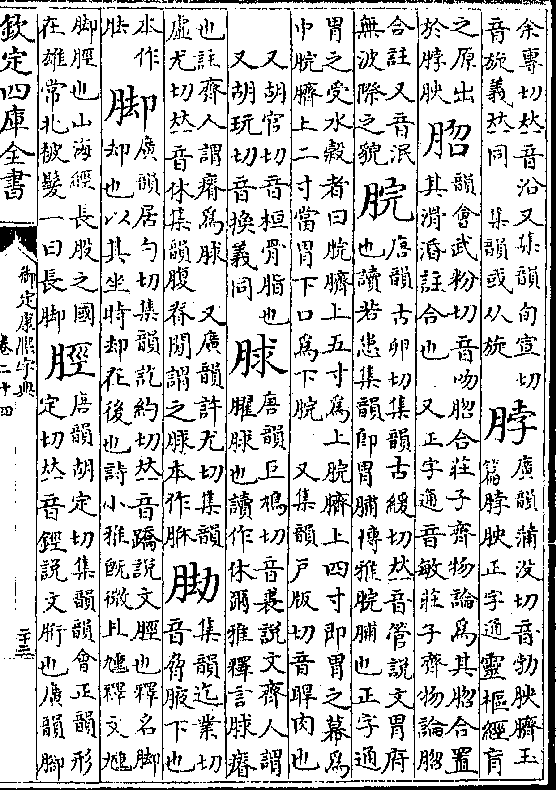 余專切𠀤音沿又集韻旬宣切
音旋義𠀤同　集韻或从旋
脖
廣韻蒲没切音勃胦臍玉
篇脖胦正字通靈樞經肓
之原出
於脖胦
脗
韻會武粉切音吻脗合莊子齊物論爲其脗合置
其滑涽註合也　又正字通音敏莊子齊物論脗
合註又音泯
無波際之貌
脘
唐韻古卵切集韻古緩切𠀤音管說文胃府
也讀若患集韻卽胃脯博雅脘脯也正字通
胃之受水穀者曰脘臍上五寸爲上脘臍上四寸卽胃之幕爲
中脘臍上二寸當胃下口爲下脘　又集韻戸版切音睅肉也
又胡官切音桓骨脂也
又胡玩切音換義同
脙
唐韻巨鳩切音裘說文齊人謂
臞脙也讀作休爾雅釋言脙瘠
也註齊人謂瘠爲脙　又廣韻許尤切集韻
虛尤切𠀤音休集韻腹脊閒謂之脙本作
集韻迄業切
音脅腋下也
本作
胠
脚
廣韻居勺切集韻訖約切𠀤音蹻說文脛也釋名脚
却也以其坐時却在後也詩小雅旣微且尰釋文尰
脚脛也山海經長股之國
在雄常北被髮一曰長脚
脛
唐韻胡定切集韻韻會正韻形
定切𠀤音鋞說文胻也廣韻脚
欽定四庫全書
御定康熙字典
卷二十四
二十三